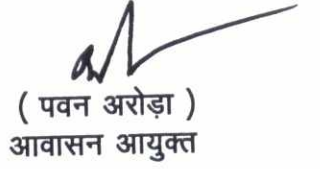 ( पवन अरोड़ा )
आवासन आयुक्त